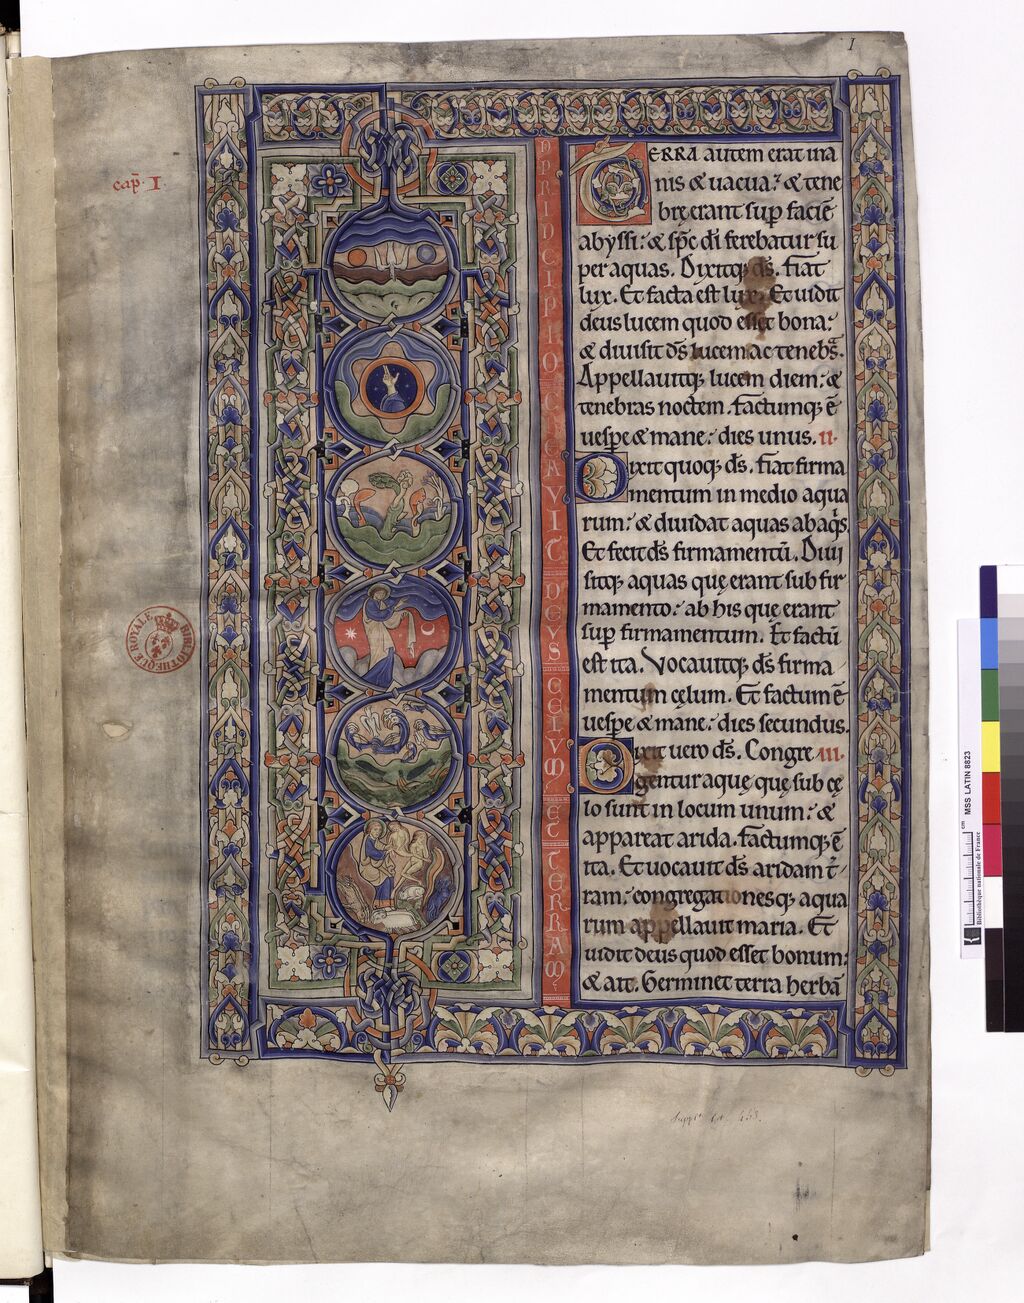 I
cap̃. I.
IN PRINCIPIO CREAVIT DEVS CELVM ET TERRAM
TERRA autem erat ina
nis & uacua: & tene
bre erant sup̱ faciē
abyssi: & sp̄c dī ferebatur su
per aquas. Dixitq; d̄s. Fiat
lux. Et facta est lux. Et uidit
deus lucem quod esset bona:
& diuisit d̄s lucem ac teneb̄s.
Appellauitq; lucem diem: &
tenebras noctem. Factumq; ē
uesp̱e & mane: dies unus. II.
Dixit quoq; d̄s. Fiat firma
mentum in medio aqua
rum: & diuidat aquas ab aq̇s.
Et fecit d̄s firmamentū. Diui
sitq; aquas quę erant sub fir
mamento: ab his quę erant
sup̱ firmamentum. Et factū
est ita. Vocauitq; d̄s firma
mentum cęlum. Et factum ē
uesp̱e & mane: dies secundus.
Dixit uero d̄s. Congre III.
gentur aquę quę sub cę
lo sunt in locum unum: &
appareat arida. Factumq; ē
ita. Et uocauit d̄s aridam t̄
ram: congregationesq; aqua
rum appellauit maria. Et
uidit deus quod esset bonum:
& ait. Germinet terra herbā
BIBLIOTHEQUE ROYALE
Suppl. lat. 453.
MSS LATIN 8823
cm
Bibliothèque nationale de France